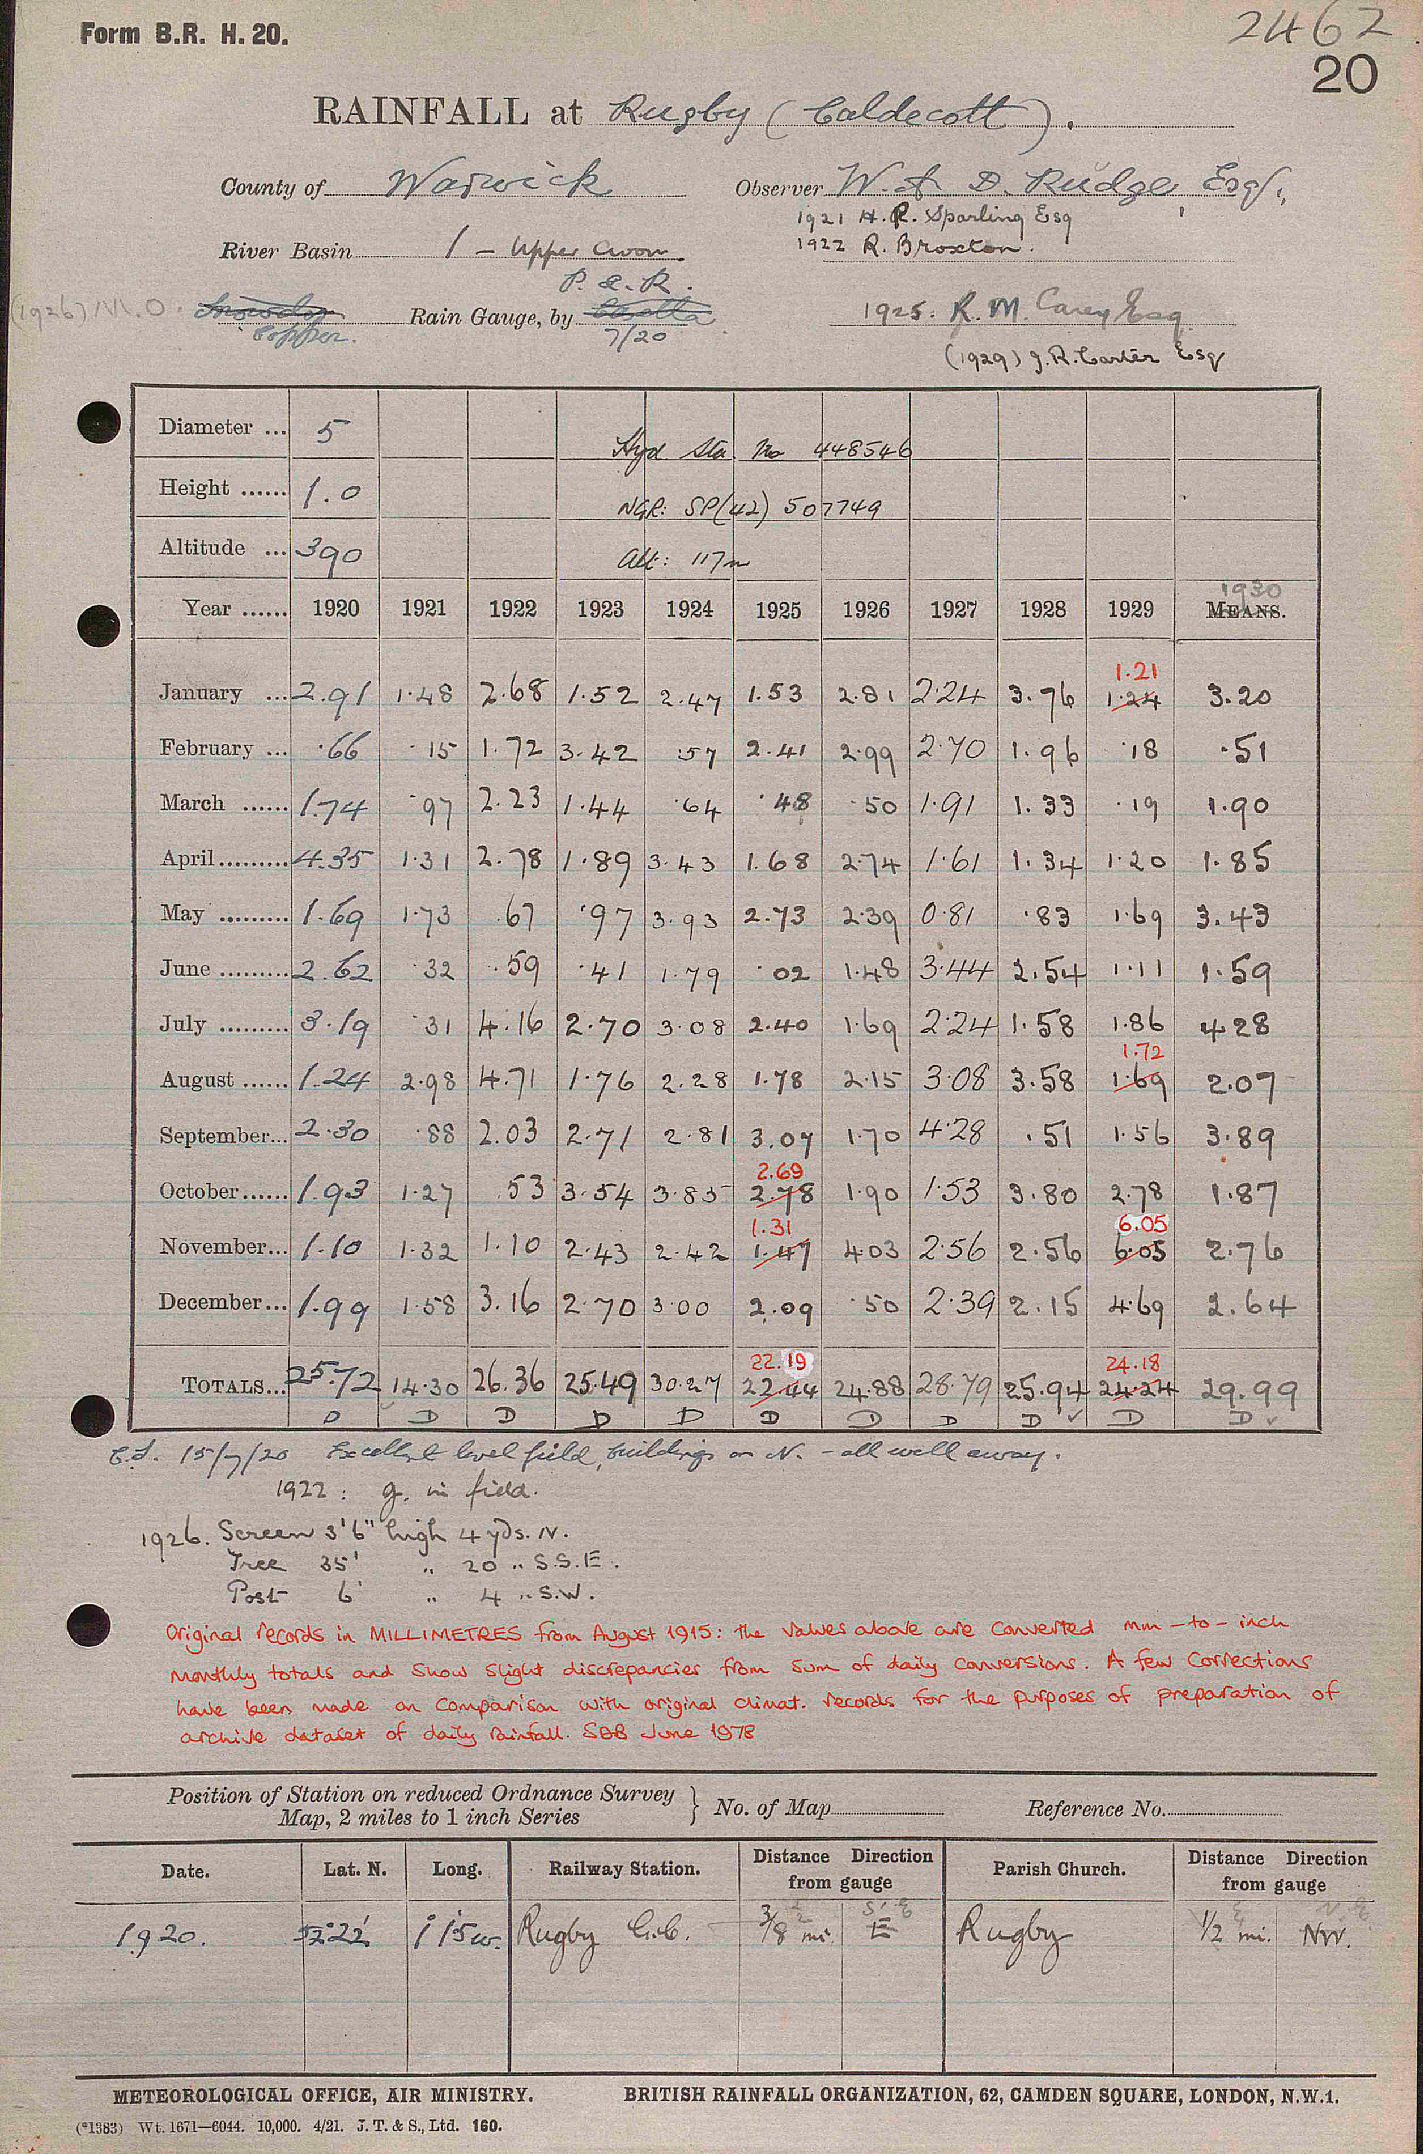 Form B.R. H. 20.
2462
20
RAINFALL at Rugby (Caldecott).
County of Warwick Observer W. A. D. Rudge, Esq.,
1921 H. R. Sparling Esq
River Basin 1 - Upper Avon 1922 R. Broxton.
P. & R.
(1926) M.O. Snowdon Rain Gauge, by Casella 1925: R. M. Carey Esq
Copper. 7/20
(1929) J. R. Carter Esq
Diameter ... 5 Hyd Sta No 448546
Height ...... 1.0 NGR: SP(42) 507749
Altitude ... 390 Alt: 117m
1930
Year ...... 1920 1921 1922 1923 1924 1925 1926 1927 1928 1929 MEANS.
1.21
January ... 2.91 1.48 2.68 1.52 2.47 1.53 2.81 2.24 3.76 1.24 3.20
February ... .66 .15 1.72 3.42 .57 2.41 2.99 2.70 1.96 .18 .51
March ...... 1.74 .97 2.23 1.44 .64 .48 .50 1.91 1.33 .19 1.90
April ......... 4.35 1.31 2.78 1.89 3.43 1.68 2.74 1.61 1.34 1.20 1.85
May ......... 1.69 1.73 .67 .97 3.93 2.73 2.39 0.81 .83 1.69 3.43
June ......... 2.62 .32 .59 .41 1.79 .02 1.48 3.44 2.54 1.11 1.59
July ......... 3.19 .31 4.16 2.70 3.08 2.40 1.69 2.24 1.58 1.86 4.28
1.72
August ...... 1.24 2.98 4.71 1.76 2.28 1.78 2.15 3.08 3.58 1.69 2.07
September... 2.30 .88 2.03 2.71 2.81 3.07 1.70 4.28 .51 1.56 3.89
2.69
October ...... 1.93 1.27 .53 3.54 3.85 2.78 1.90 1.53 3.80 2.78 1.87
1.31 6.05
November... 1.10 1.32 1.10 2.43 2.42 1.47 4.03 2.56 2.56 6.05 2.76
December... 1.99 1.58 3.16 2.70 3.00 2.09 .50 2.39 2.15 4.69 2.64
22.19 24.18
TOTALS... 25.72 14.30 26.36 25.49 30.27 22.44 24.88 28.79 25.94 24.24 29.99
D D D D D D D D D ✓ D D ✓
15/7/20 Excellent level field, buildings on N. - all well away.
1922 : g. in field.
1926. Screen 3'6" high 4 yds. N.
Tree 35' " 20 " S.S.E.
Post 6' " 4 " S.W.
Original records in MILLIMETRES from August 1915: the values above are converted mm-to-inch
monthly totals and show slight discrepancies from sum of daily conversions. A few corrections
have been made on comparison with original climat. records for the purposes of preparation of
archive dataset of daily rainfall. SBB June 1978
Position of Station on reduced Ordnance Survey
Map, 2 miles to 1 inch Series } No. of Map Reference No.
Date. Lat. N. Long. Railway Station. Distance Direction from gauge Parish Church. Distance Direction from gauge
1920. 52°22' 1°15'w. Rugby G.C. 3/8 mi. E Rugby 1/2 mi. NW.
METEOROLOGICAL OFFICE, AIR MINISTRY. BRITISH RAINFALL ORGANIZATION, 62, CAMDEN SQUARE, LONDON, N.W.1.
(*1383) Wt. 1671—6044. 10,000. 4/21. J. T. & S., Ltd. 160.